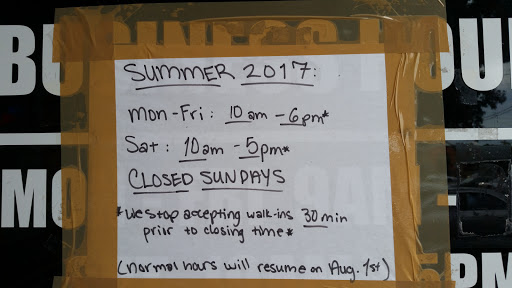 BUSINESS HOUR
SUMMER 2017:
Mon-Fri: 10am - 6pm*
Sat: 10am - 5pm*
CLOSED SUNDAYS
*We stop accepting walk-ins 30 min
prior to closing time*
(normal hours will resume on Aug. 1st)